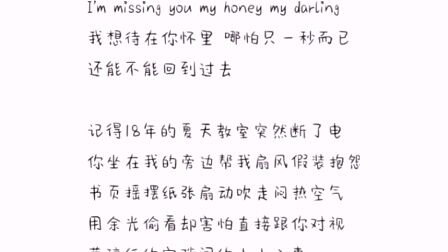 I'm missing you my honey my darling
我想待在你怀里 哪怕只一秒而已
还能不能回到过去
记得18年的夏天教室突然断了电
你坐在我的旁边帮我扇风假装抱怨
书页摇摆纸张扇动吹走闷热空气
用余光偷看却害怕直接跟你对视